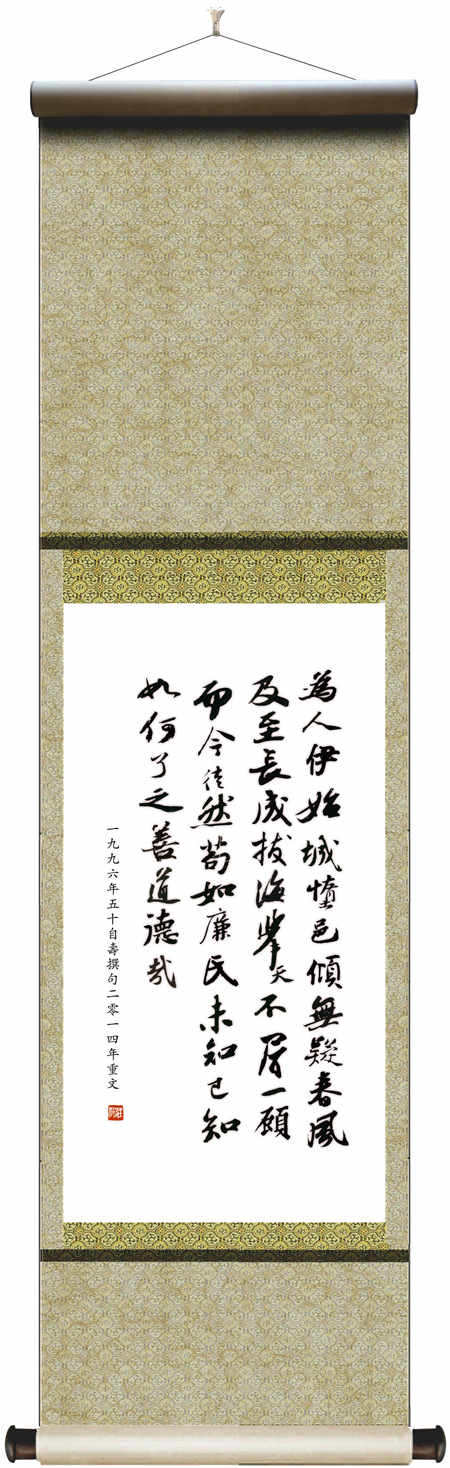 為人伊始城惰邑傾無疑春風
及至長成拔海擎天不屑一顧
而今徒然苟如廉民未知已知
如何了之善道德哉
一九九六年五十自壽撰句二零一四年重文